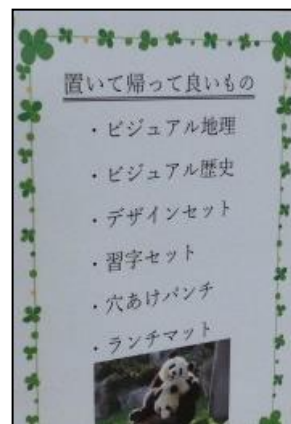 置いて帰って良いもの
・ビジュアル地理
・ビジュアル歴史
・デザインセット
・習字セット
・穴あけパンチ
・ランチマット